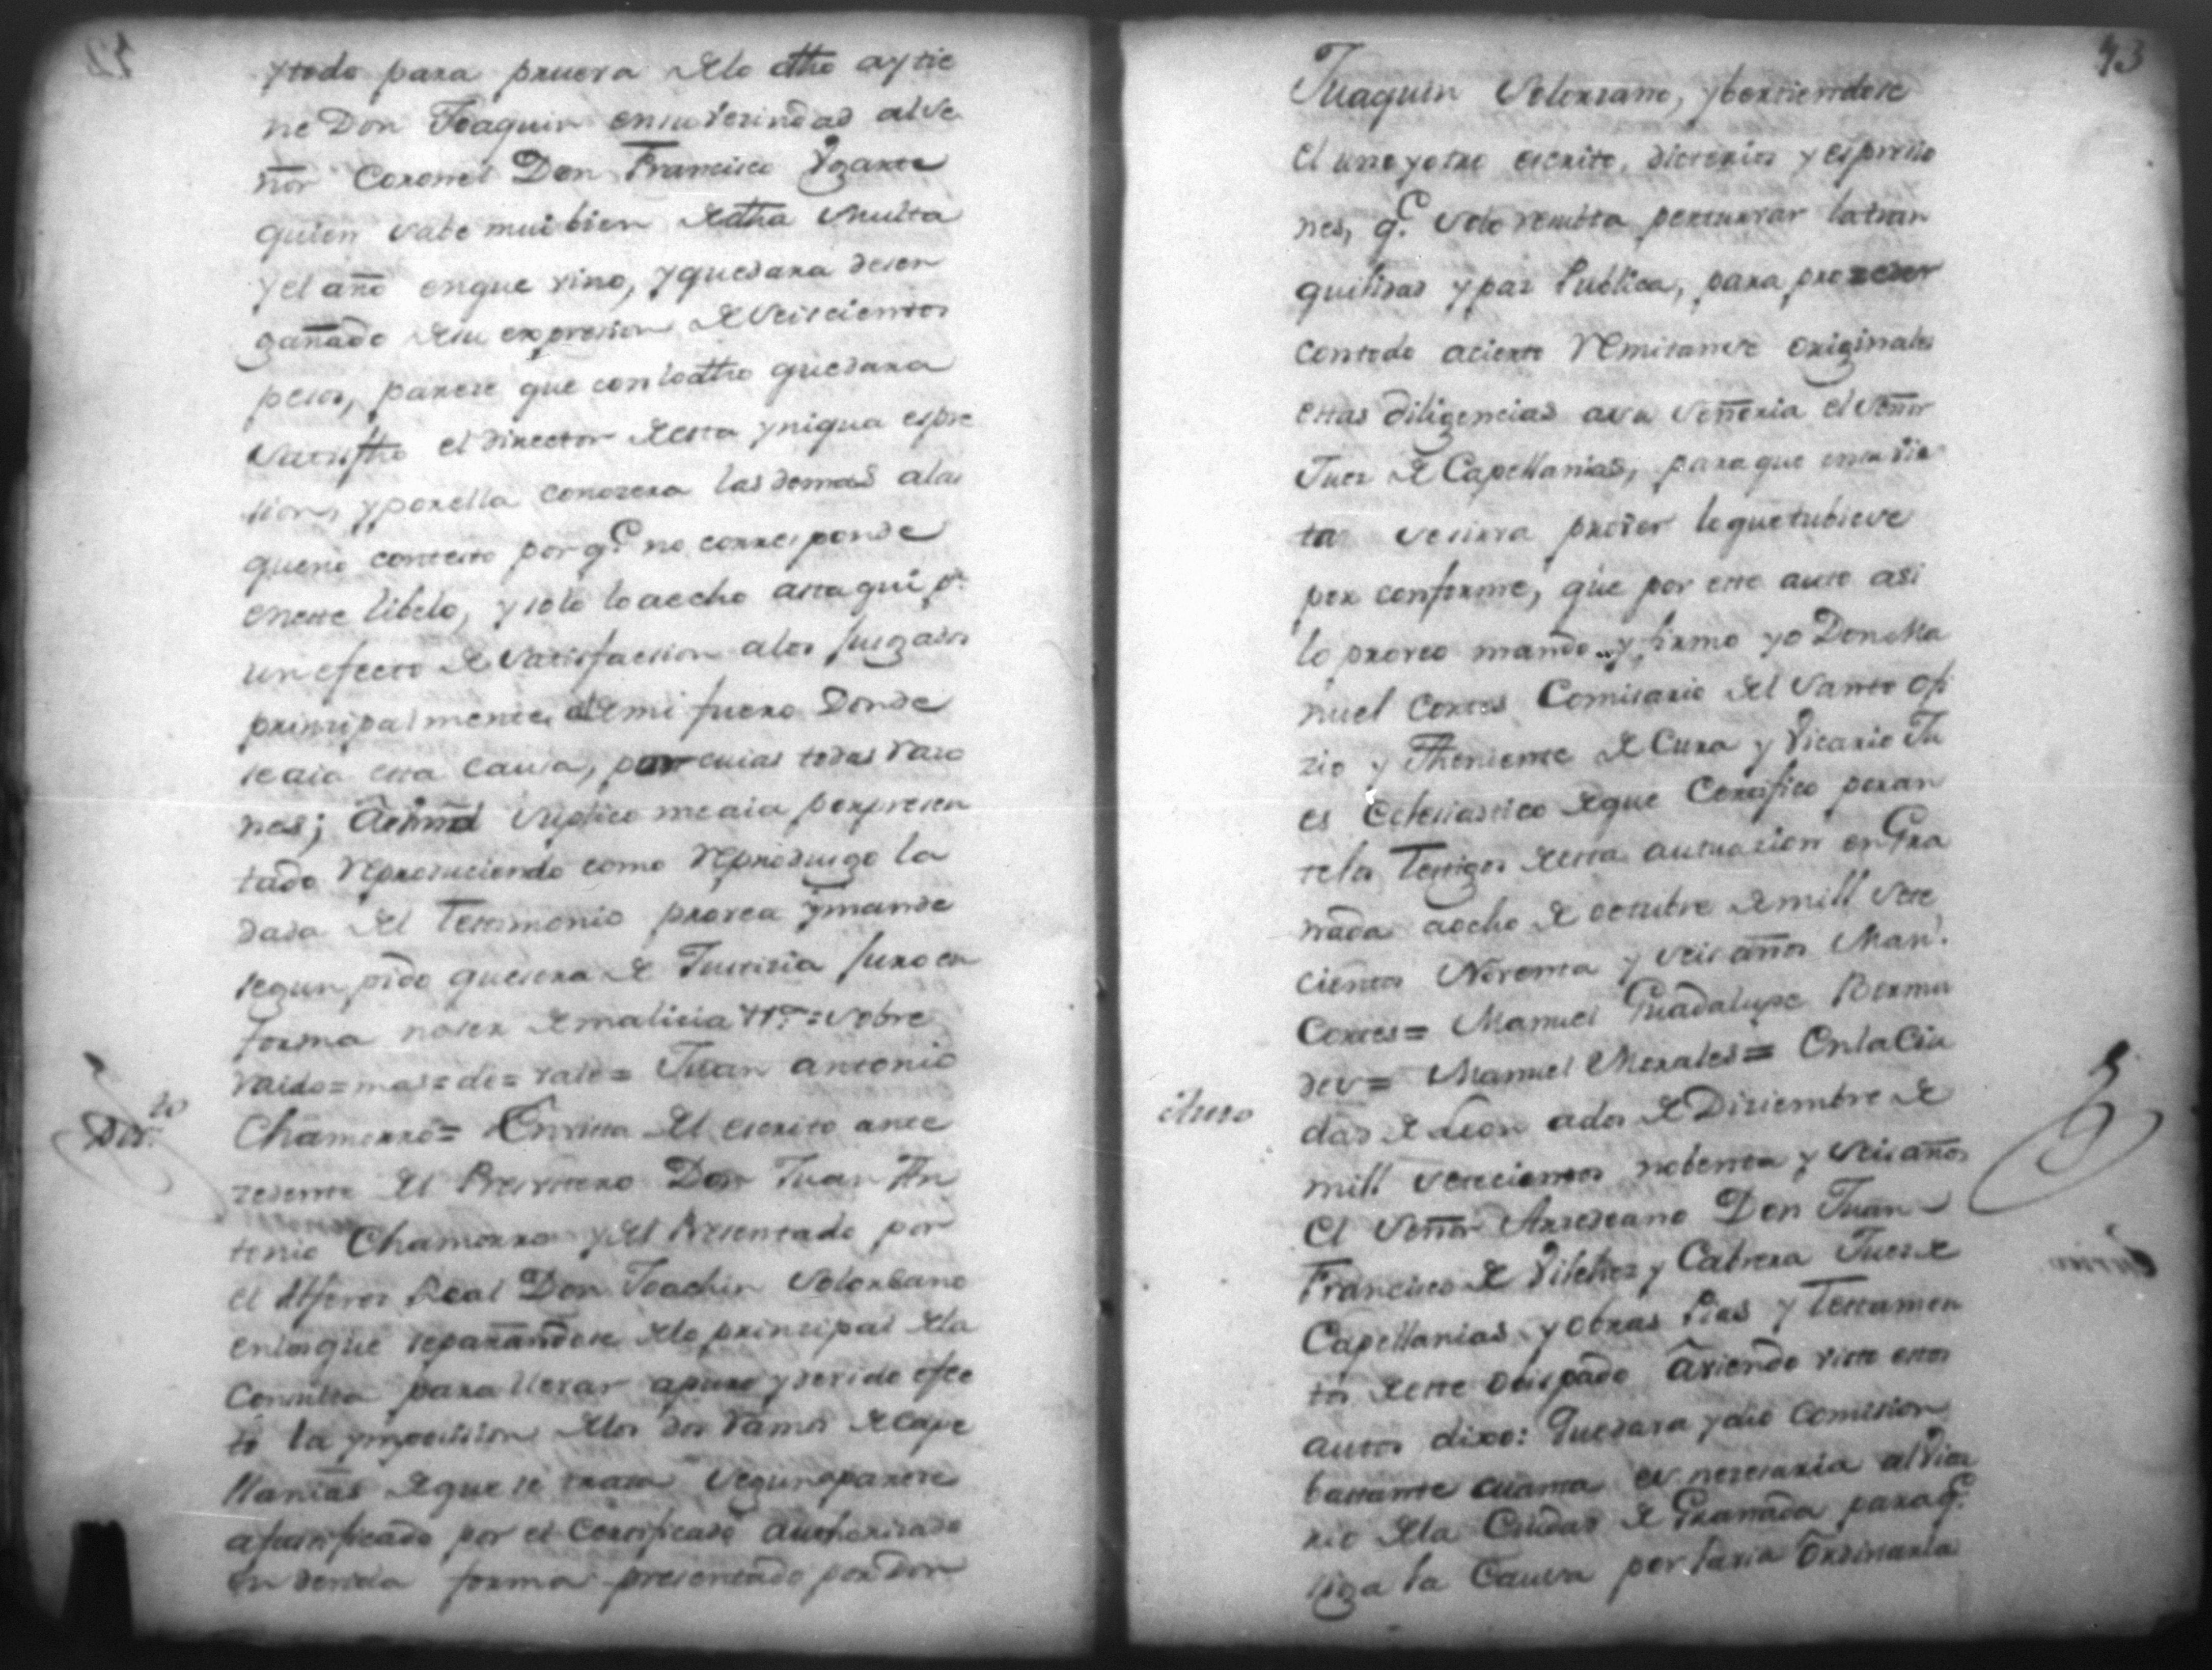 y todo para prueva de lo dho ay tie
ne Don Joaquin en su vecindad al Se
ñor Coronel Don Francisco Ygarte
quien save mui bien de dha Multa
y el año en que vino, y quedara desen
gañado de su expresion de Seiscientos
pesos, parese que con lo dho quedara
Satisfho el director de esta ynigua espre
sion, y por ella conozera las demas a las
que no contesto por q.e no corresponde
en este libelo, y solo lo aecho asta qui p.a
un efecto de Satisfacsion a los Juzgados
prinzipalmente de mi fuero Donde
se aia esta Causa, por cuias todas razo
nes; Suplico me aia por presen
tado Reproduciendo como Reproduzgo la
dada del Testimonio provea y mande
segun pido que sera de Justizia Juro en
forma no ser de malicia = Sobre
raido = mas = de = vale = Juan antonio
Chamorro = En vista del escrito ante
zedente del Presvitero Don Juan An
tonio Chamorro y del Presentado por
el Alferes Real Don Joachin Solorzano
en los que separandose de lo prinzipal de la
Consulta para llevar apuro y devido efec
to la ymposision de los dos Ramos de Cape
llanias de que se trata Segun aparese
afianzificado por el Certificado authorizado
en devida forma presentado por Don
Dec.to
43
Juaquin Solorzano, y bertiendose
el uno y otro escrito, dicterios y espresio
nes, q.e Solo remita perturvar la tran
quilidad y paz Publica, para prozeder
con todo acierto Remitanse originales
estas diligencias a su Señoria el Señor
Juez de Capellanias, para que en su vis
ta se sirva prover lo que tubiese
por conforme, que por este auto asi
lo proveo mando y firmo yo Don Ma
nuel Cortes Comisario del Santo ofi
zio y Theniente de Cura y Vicario Ju
es Eclesiastico de que Certifico por an
te los Testigos de esta actuazion en Gra
nada a ocho de octubre de mill Sete
cientos Noventa y Seis años Man.l
Cortes = Manuel Guadalupe Bermu
des = Manuel Morales = En la Ciu
dad de Leon a dos de Diziembre de
mill setecientos nobenta y Seis años
El Señor Arzedeano Don Juan
Francisco de Vilchez y Cabrera Juez de
Capellanias y obras Pias y Testamen
tos de este Obispado Aviendo visto estos
autos dixo: Que dava y dio Comision
bastante cuanta es nezesaria al Vica
rio de la Ciudad de Granada para q.e
siga la Causa por la via Ordinaria
Auto